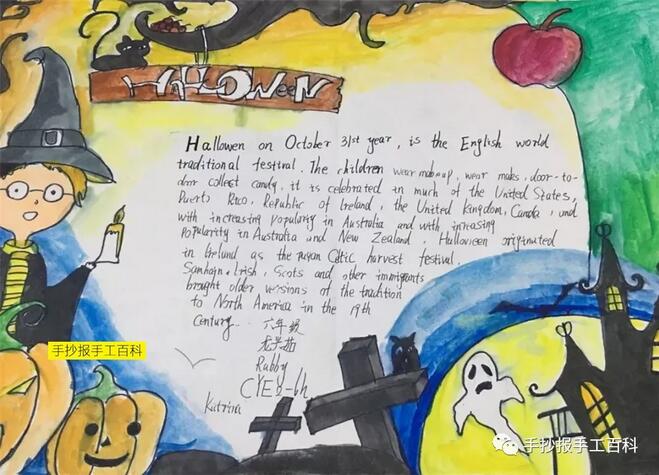 HALLOWEEN
Hallowen on October 31st year, is the English world
traditional festival. The children wear makeup, wear maks, door-to-
door collect candy, it is celebrated in much of the United States,
Puerto Rico, Republic of Ireland, the United Kingdom, Canda, and
with increasing popularity in Australia and with increasing
Popularity in Australia and New Zealand, Halloveen originated
in Ireland as the pagan Celtic harvest festival.
Samhain, Irish, Scots and other immigrants
brought older versions of the tradition
to North America in the 19th
century.
六年级
Rubby
Katrina
手抄报手工百科
手抄报手工百科